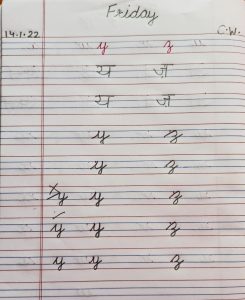 Friday
14.1.22 C.W.
y z
य ज
य ज
y z
y z
y y z
y y z
y y z